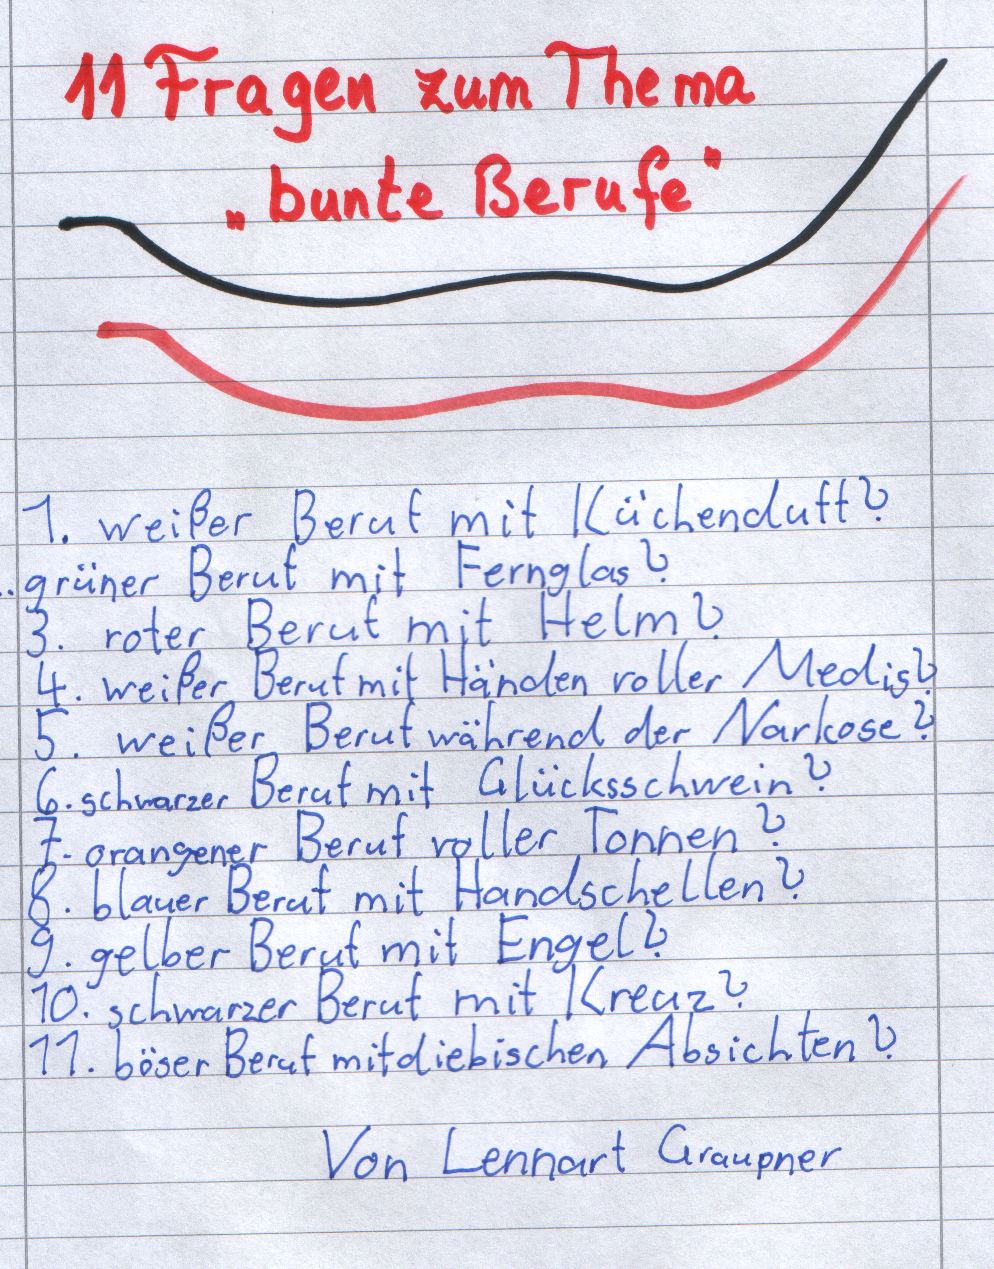 11 Fragen zum Thema
„bunte Berufe"
1. weißer Beruf mit Küchenduft?
.. grüner Beruf mit Fernglas?
3. roter Beruf mit Helm?
4. weißer Beruf mit Händen voller Medis?
5. weißer Beruf während der Narkose?
6. schwarzer Beruf mit Glücksschwein?
7. orangener Beruf voller Tonnen?
8. blauer Beruf mit Handschellen?
9. gelber Beruf mit Engel?
10. schwarzer Beruf mit Kreuz?
11. böser Beruf mit diebischen Absichten?
Von Lennart Graupner